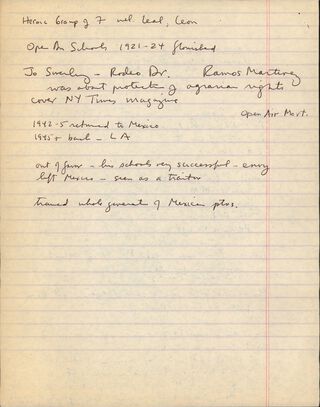 Heroic Group of 7 incl. Leal, Leon
Open Air Schools 1921-24 flourished
Jo Swerling - Rodeo Dr. Ramos Martinez
was about protecting agrarian rights
cover NY Times magazine
Open Air Mort.
1942-5 returned to Mexico
1945+ back - LA
out of favor - his schools very successful - envy
left Mexico - seen as a traitor
trained whole generat. of Mexican ptrs.